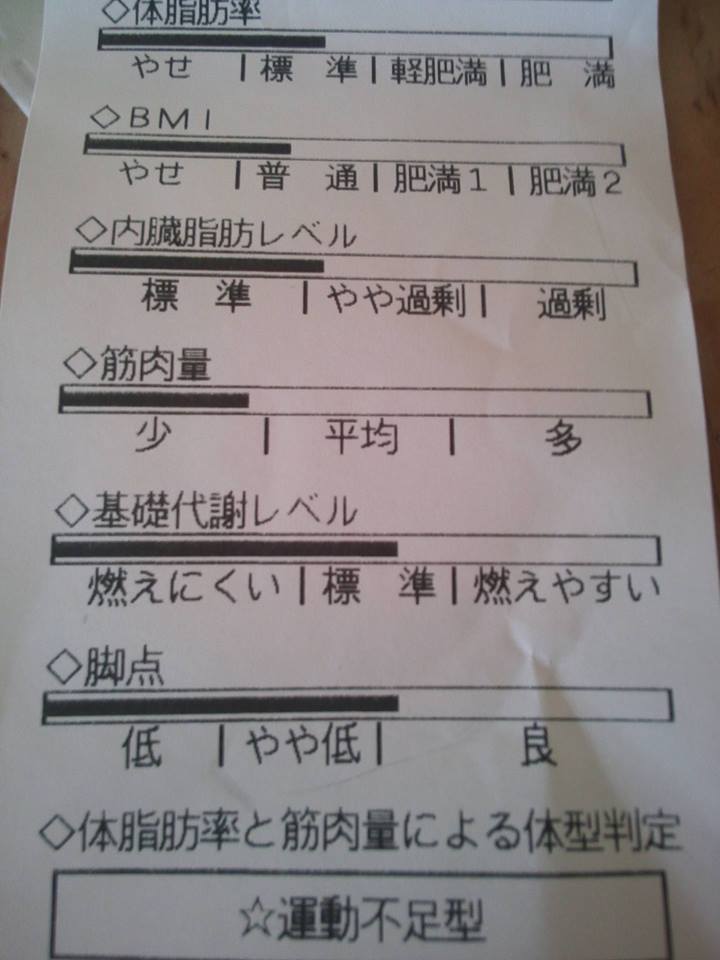 ◇体脂肪率
やせ | 標 準 | 軽肥満 | 肥 満
◇BMI
やせ | 普 通 | 肥満1 | 肥満2
◇内臓脂肪レベル
標 準 | やや過剰 | 過剰
◇筋肉量
少 | 平均 | 多
◇基礎代謝レベル
燃えにくい | 標 準 | 燃えやすい
◇脚点
低 | やや低 | 良
◇体脂肪率と筋肉量による体型判定
☆運動不足型